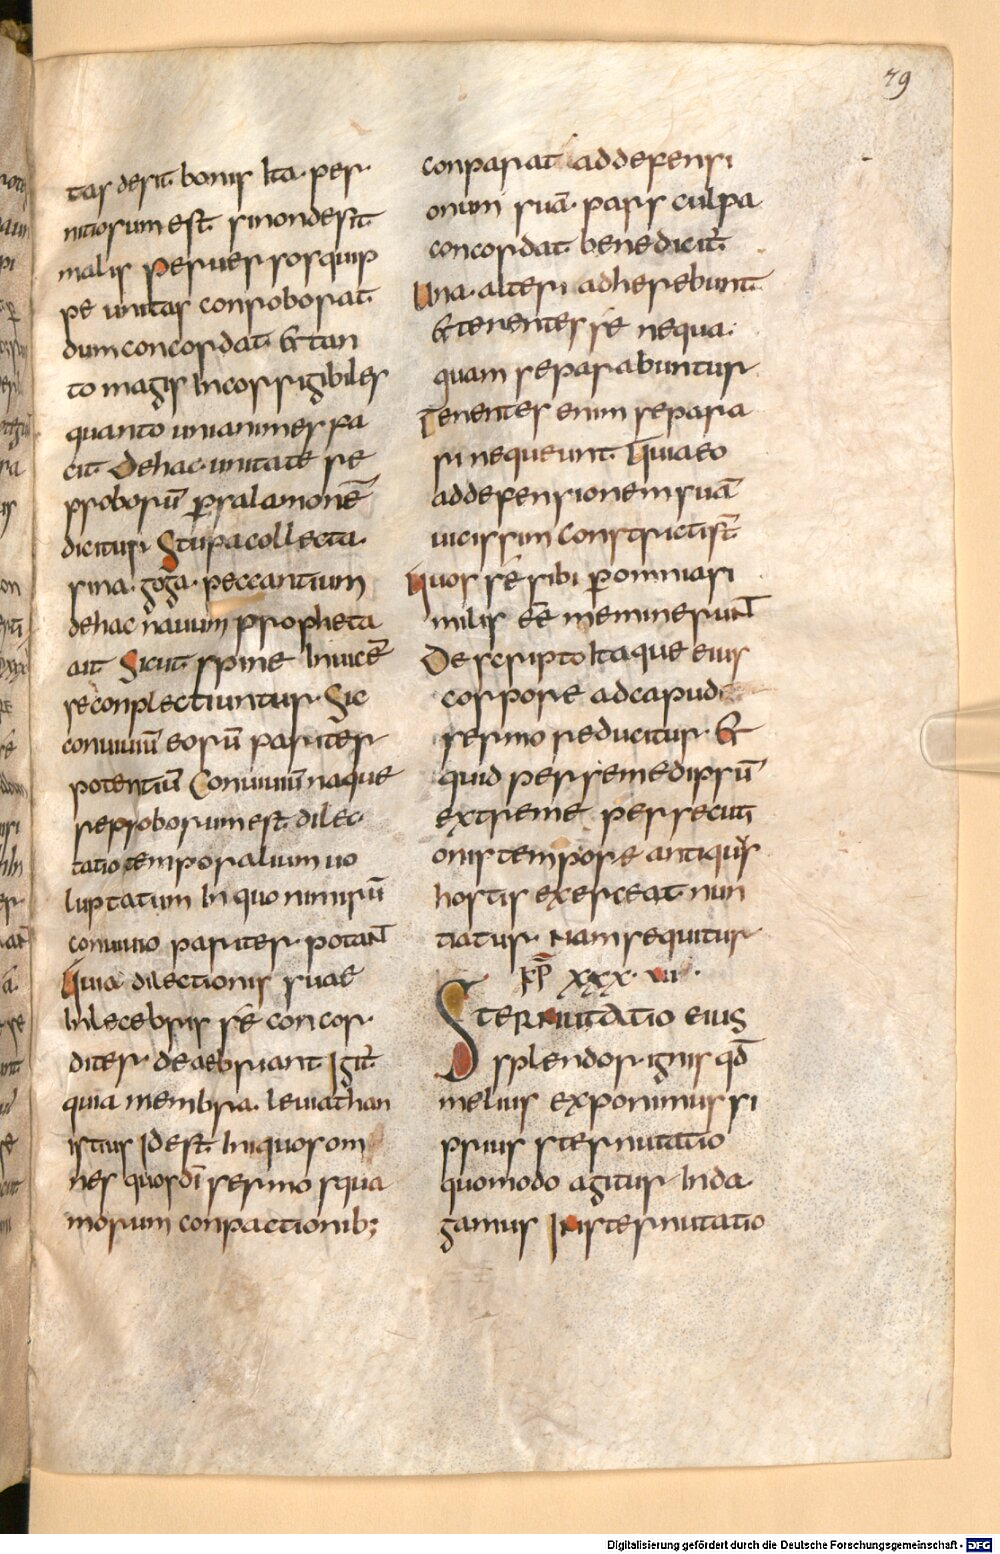 79
tas desit bonis Ita per
nitiosum est si non desit
malis Peruersos quip
pe unitas conroborat
dum concordat & tan
to magis Incorrigibiles
quanto unianimes fa
cit De hac unitate re
proborū p salamonē
dicitur Stupa collecta
sinagoga peccantium
de hac nauum propheta
ait Sicut spine Inuicē
se conplectiuntur Sic
conuiuiū eorū pariter
potentiū Conuiuiū naque
reproborum est dilec
tatio temporalium uo
luptatum In quo nimirū
conuiuio pariter potant
Quia dilectionis suae
Inlecebris se concor
diter deaebriant Igit̄
quia membra leuiathan
istius Id est Iniquos om
nes quos dī sermo squa
marum conpactionib;
conparat ad defensi
onum suā pars culpa
concordat bene dicit̄
Una alteri adherebunt
& tenentes se nequa
quam separabuntur
Tenentes enim separa
ri nequeunt Quia eo
ad defensionem suā
uicissim Constricti st̄
Quos se sibi p omnia si
milis eē meminerunt
Descripto Itaque eius
corpore ad capud
sermo reducitur &
quid per semedipsū
extreme persecuti
onis tempore antiquus
hostis exerceat nun
tiatur Nam sequitur
kp̄ XXX VII
Sternutatio eius
splendor ignis qd̄
melius exponimus si
prius sternutatio
quomodo agitur Inda
gamus In sternutatio
Digitalisierung gefördert durch die Deutsche Forschungsgemeinschaft - DFG